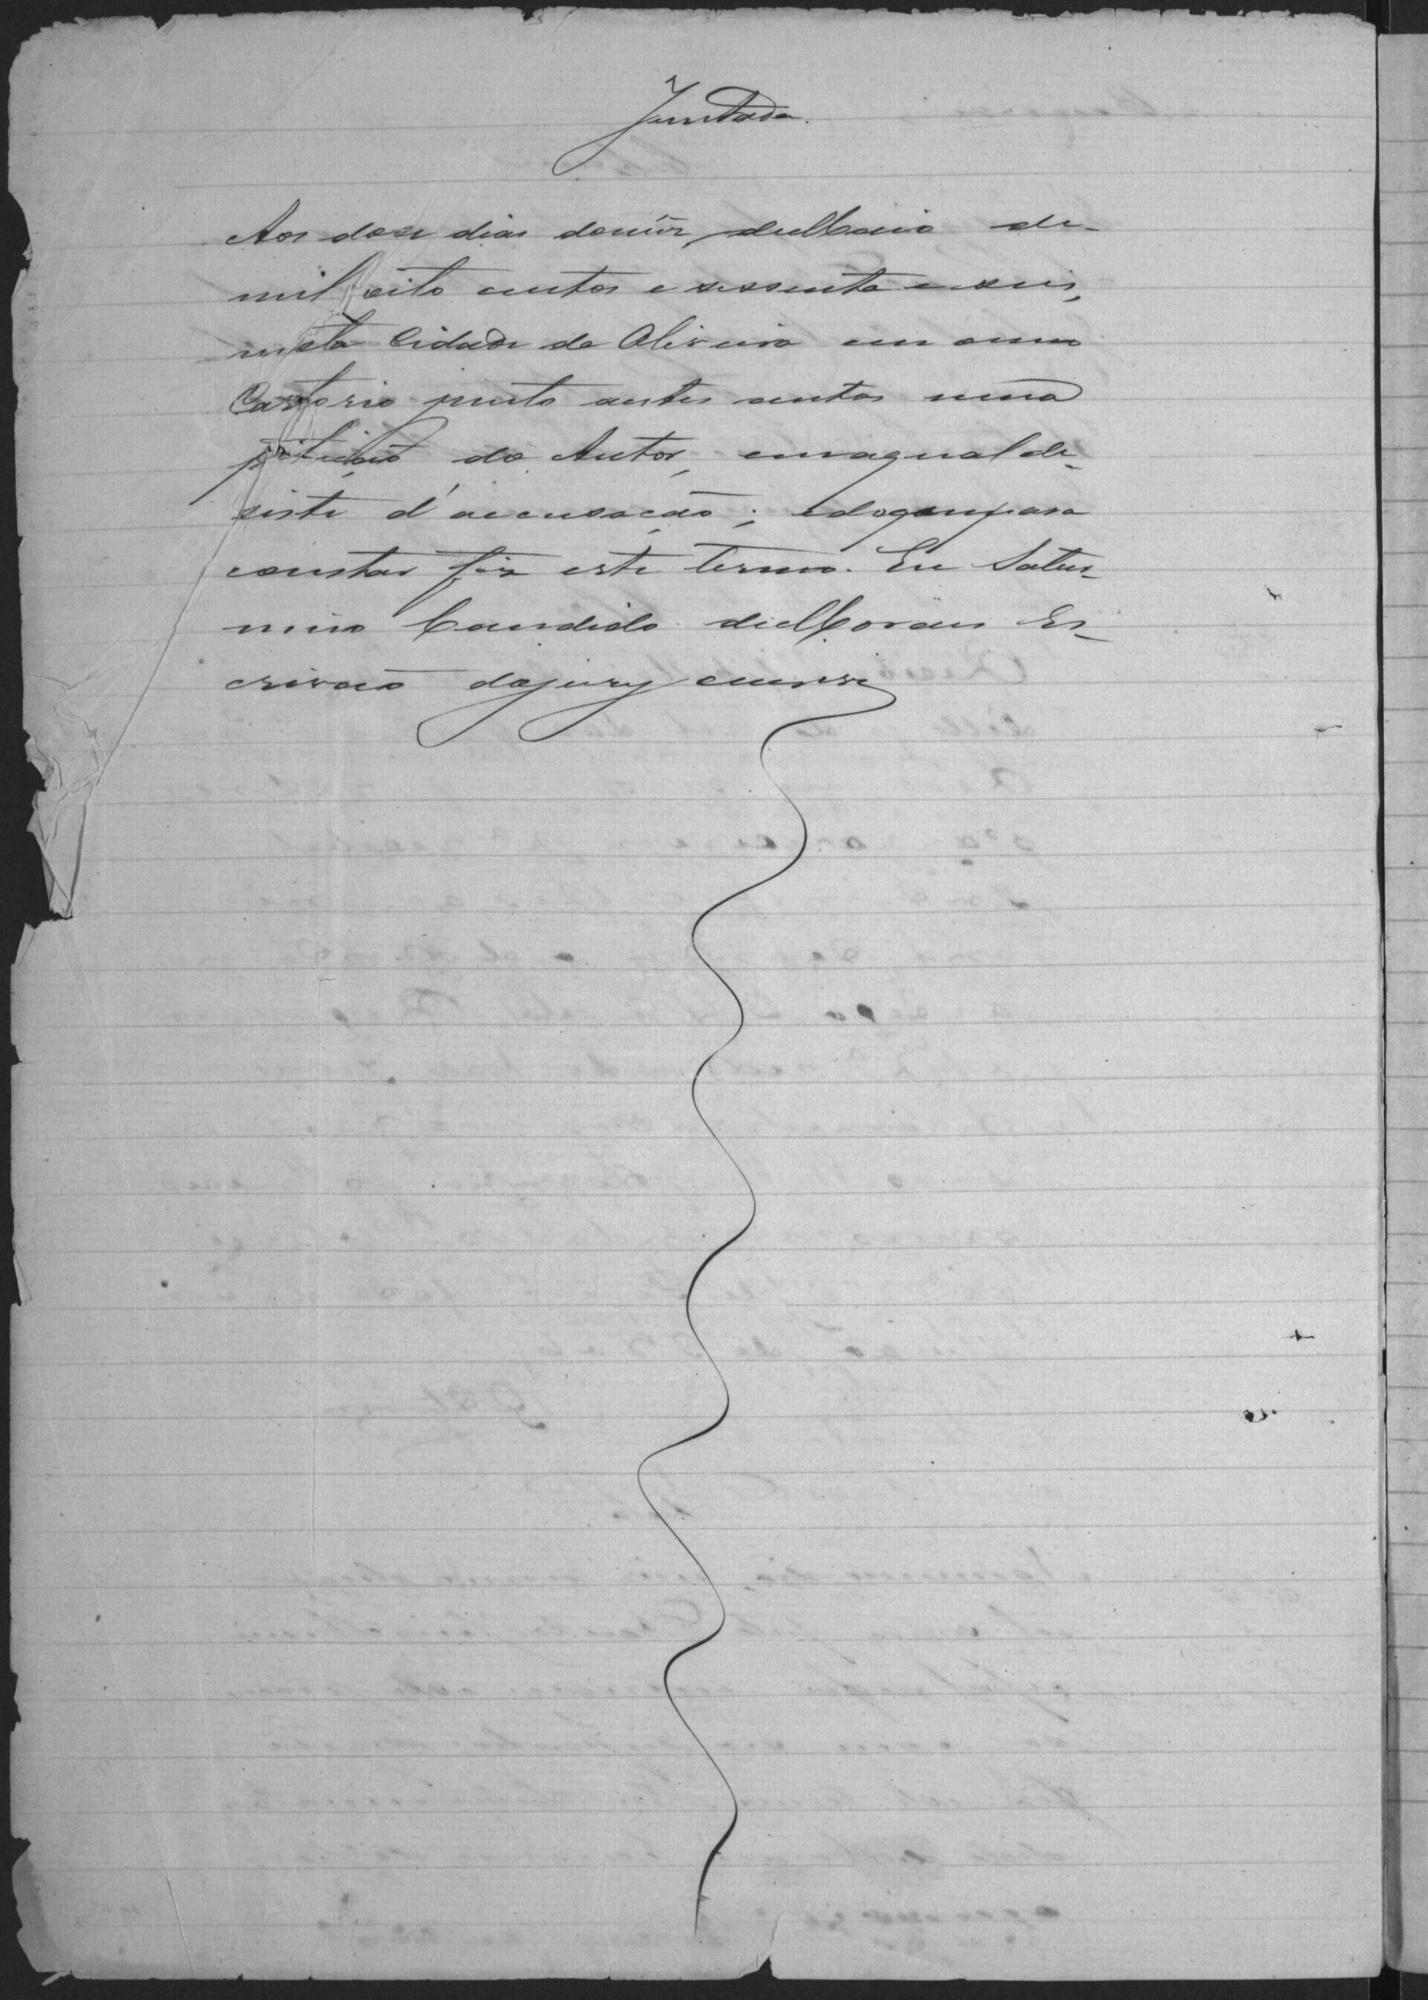 Juntada.
Aos doze dias do mez de Maio de
mil oito centos e sessenta e seis,
nesta Cidade da Oliveira em meu
Cartorio junto a estes autos uma
petição do Autor, em a qual de-
siste d'accusação; e do que para
constar fiz este termo. Eu Satur-
nino Candido de Moraes Es-
crivaõ do jury escrevi